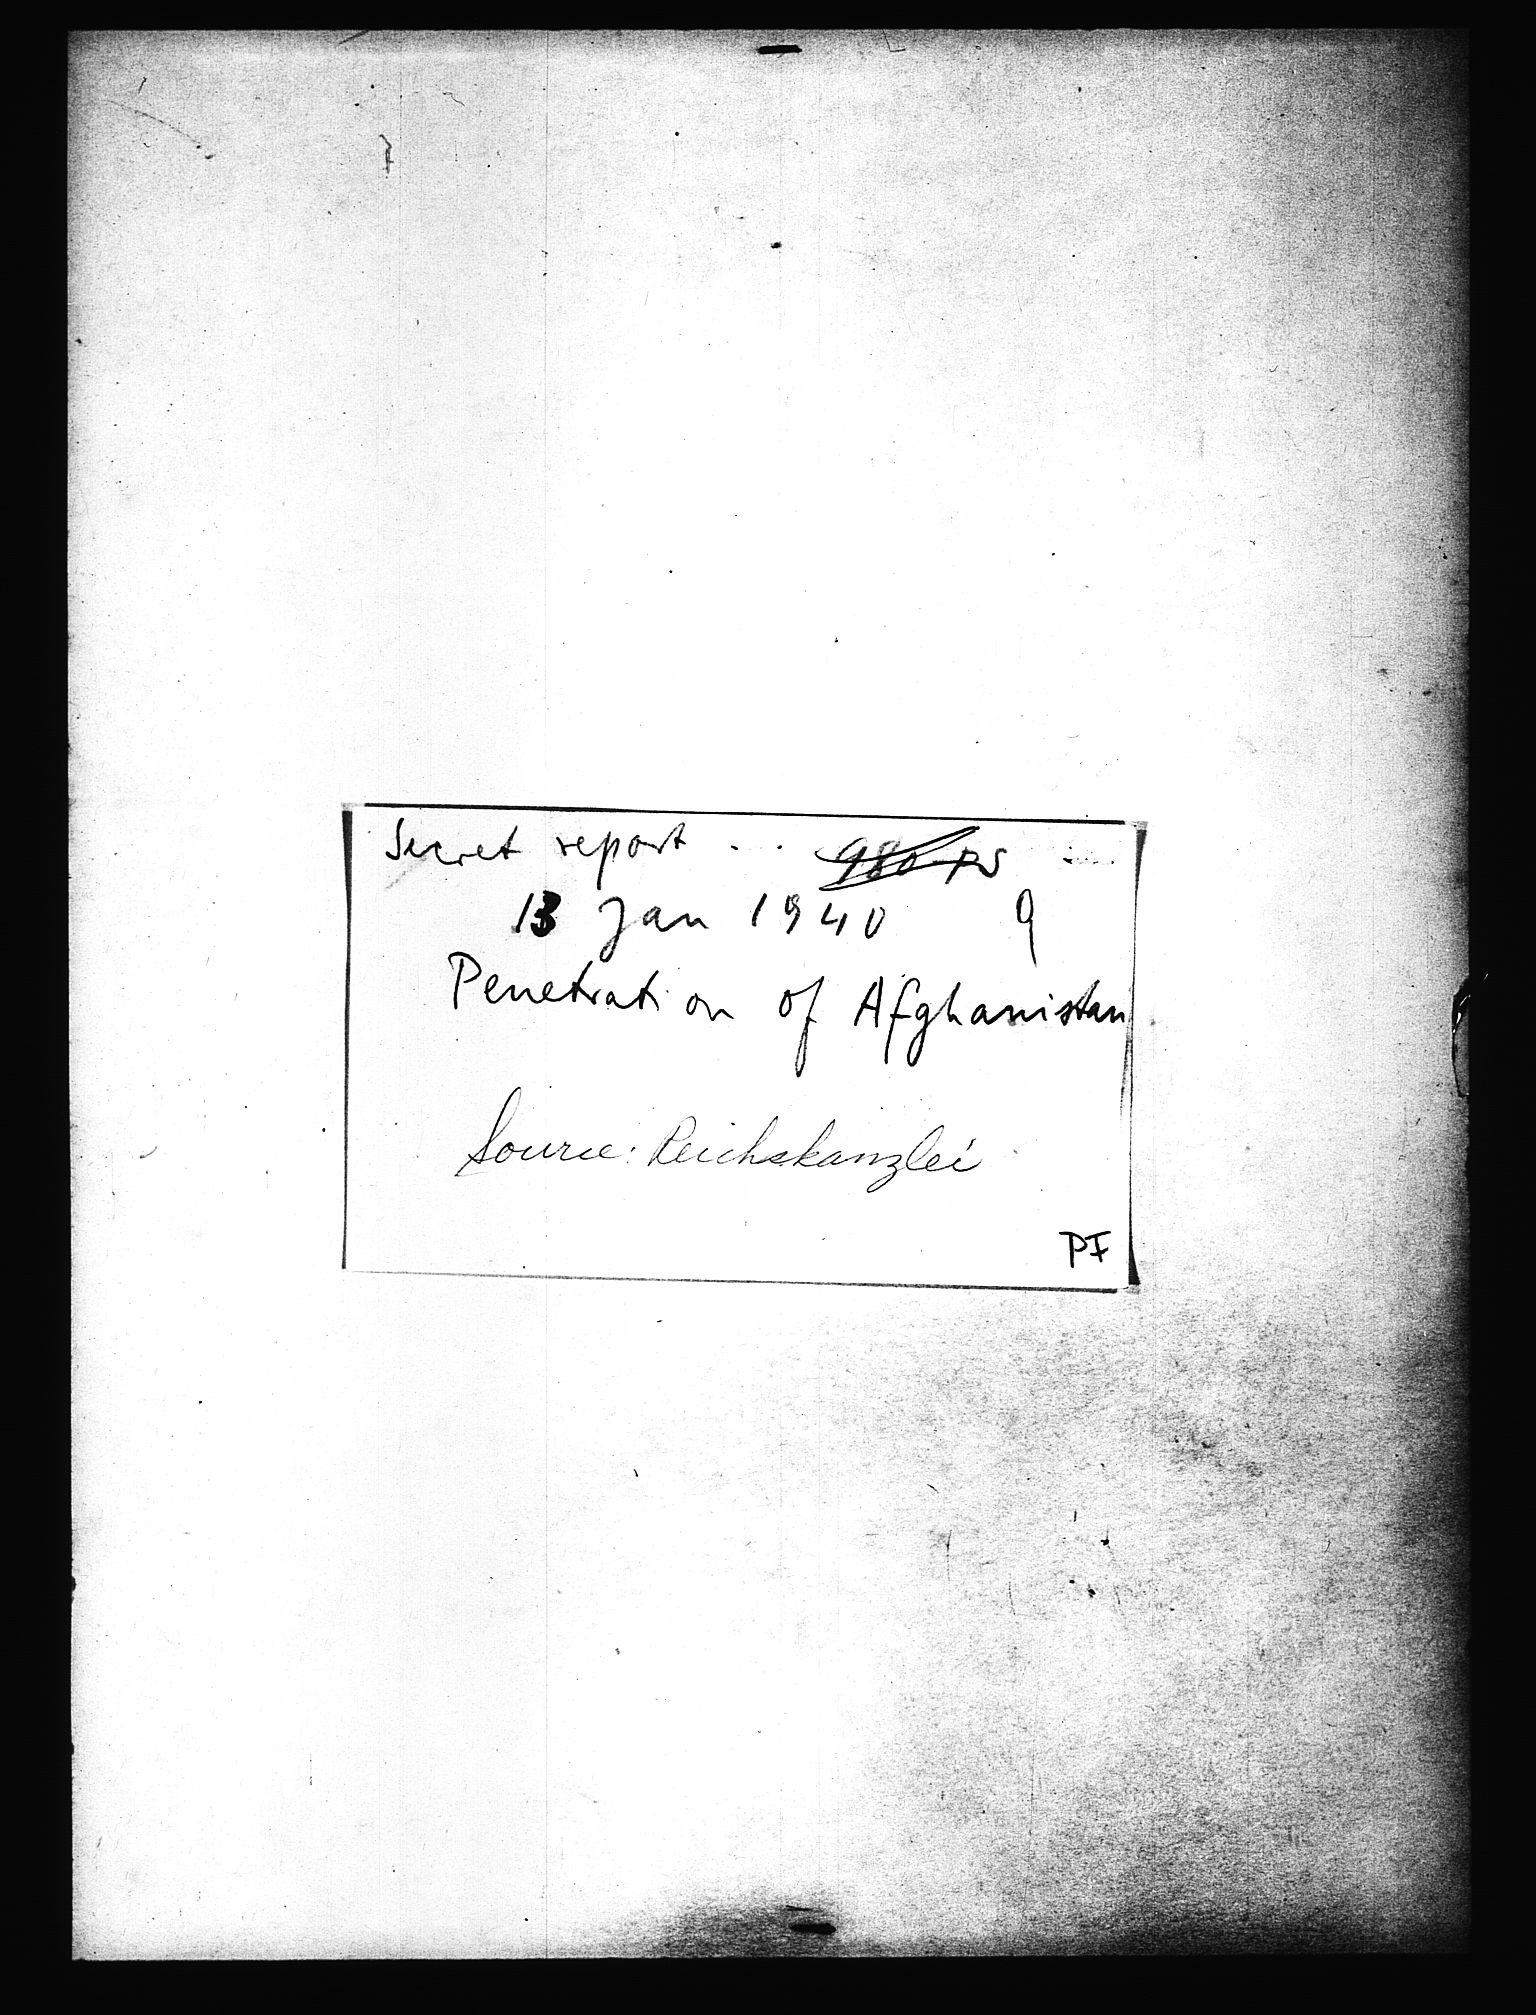 Secret report . . . 980-PS
13 Jan 1940 9
Penetration of Afghanistan
Source: Reichskanzlei
PF